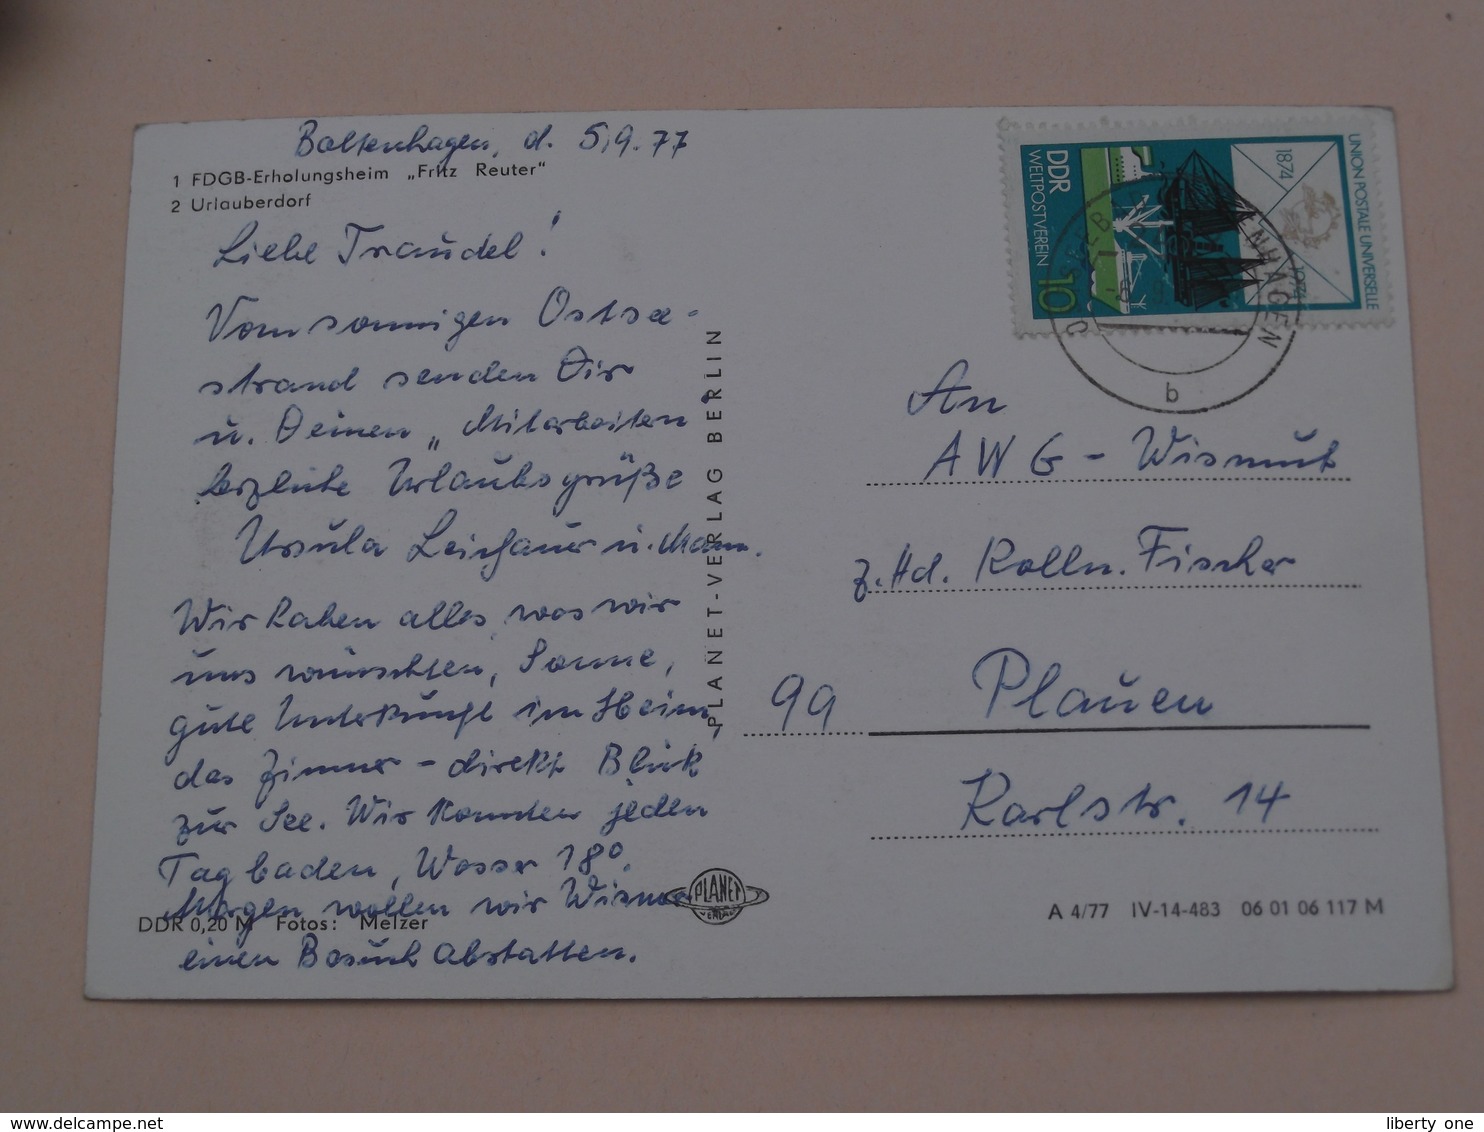 Boltenhagen, d. 5.9.77
1 FDGB-Erholungsheim „Fritz Reuter“
2 Urlauberdorf
Liebe Traudel!
Vom sonnigen Ostsee-
strand senden Dir
u. Deinen „Mitarbeitern
herzliche Urlaubsgrüße
Ursula u. Mann.
Wir haben alles, was wir
uns wünschten, Sonne,
gute Unterkunft im Heim,
das Zimmer - direkt Blick
zur See. Wir konnten jeden
Tag baden, Wasser 18°.
Morgen wollen wir Wismar
einen Besuch abstatten.
DDR 0,20 M Fotos: Melzer
PLANET-VERLAG BERLIN
PLANET
VERLAG
DDR
WELTPOSTVEREIN
10
1874
1974
UNION POSTALE UNIVERSELLE
OSTSEEBAD BOLTENHAGEN
b
An
AWG - Wismut
z.Hd. Kolln. Fischer
99 Plauen
Karlstr. 14
A 4/77 IV-14-483 06 01 06 117 M
liberty one